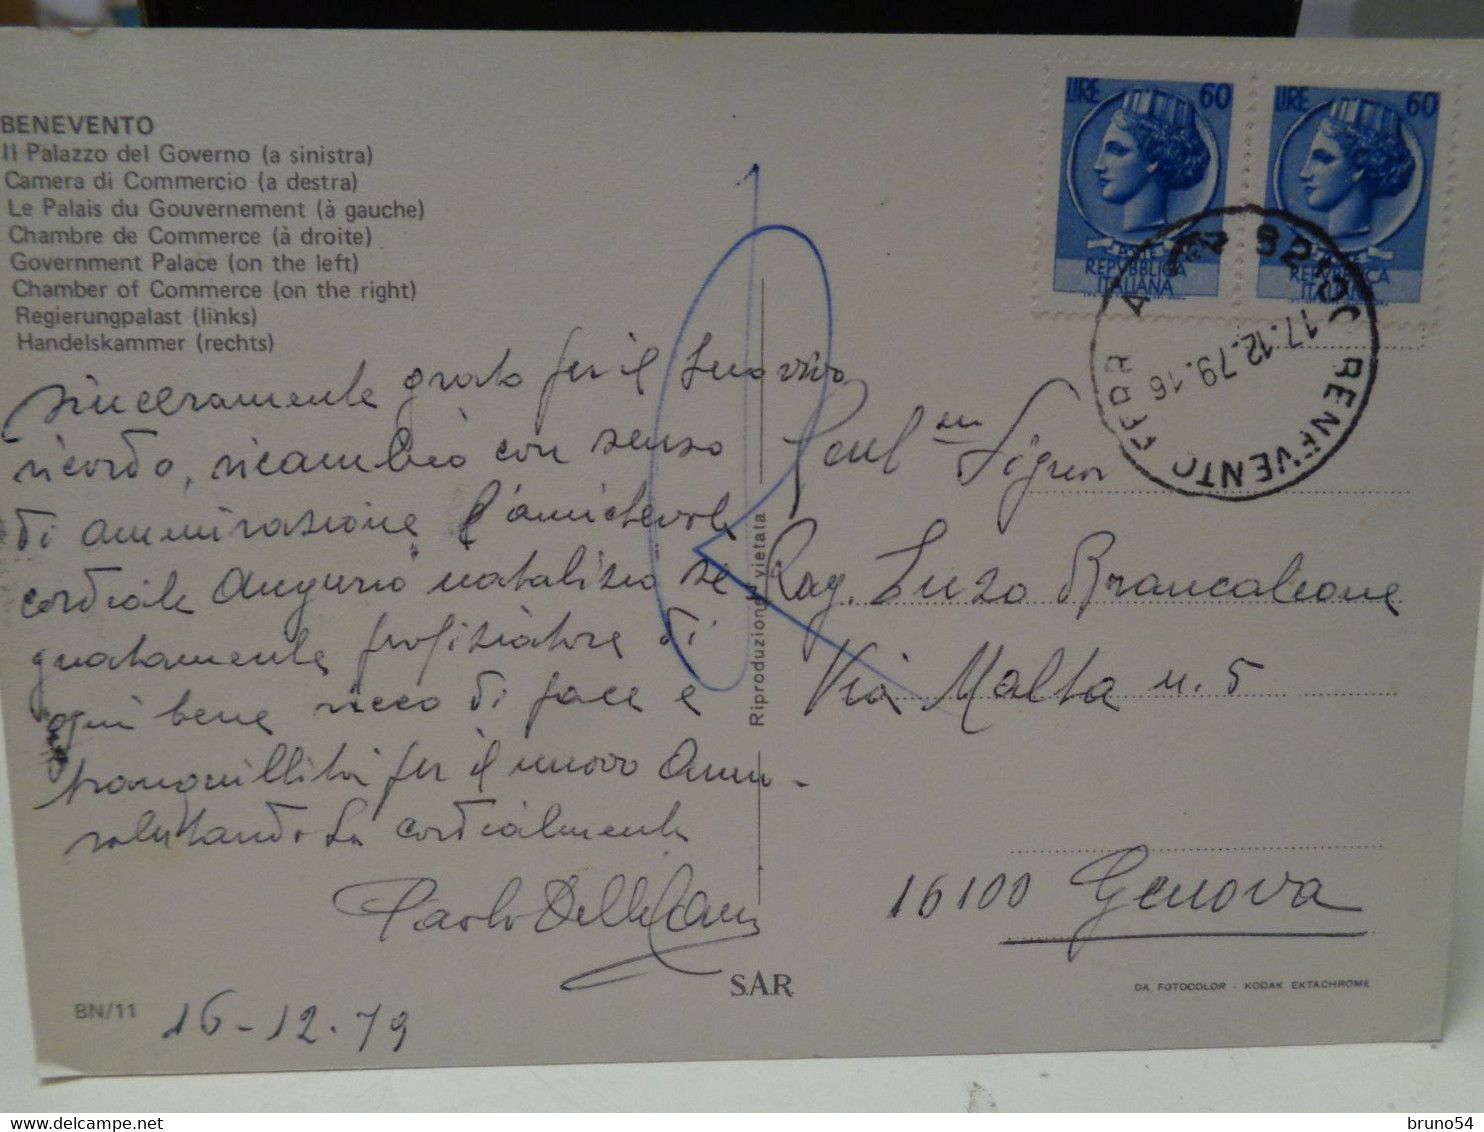 BENEVENTO
Il Palazzo del Governo (a sinistra)
Camera di Commercio (a destra)
Le Palais du Gouvernement (à gauche)
Chambre de Commerce (à droite)
Government Palace (on the left)
Chamber of Commerce (on the right)
Regierungpalast (links)
Handelskammer (rechts)
sinceramente grato per il Suo vivo
ricordo, ricambio con senso
di ammirazione l'amichevole
cordiale augurio natalizio se
gnatamente propiziatore di
ogni bene ricco di pace e
tranquillità per il nuovo Anno
salutando La cordialmente
Paolo
16-12-79
BN/11
Riproduzione vietata
S.A.R
LIRE 60
POSTE
REPVBBLICA
ITALIANA
LIRE 60
REPVBBLICA
ITALIANA
BENEVENTO FERR
17.12.79.16
Gent.
Signor
Rag. Enzo Brancaleone
Via Malta n. 5
16100 Genova
DA FOTOCOLOR - KODAK EKTACHROME
bruno54